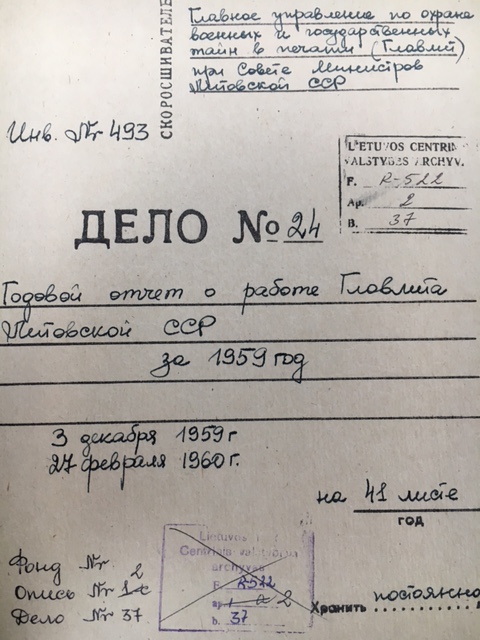 Главное управление по охране
военных и государственных
тайн в печати (Главлит)
при Совете Министров
Литовской ССР
СКОРОСШИВАТЕЛЬ
Инв. № 493
LIETUVOS CENTRIN
VALSTYBĖS ARCHYV.
F. R-522
Ap. 2
B. 37
ДЕЛО № 24
Годовой отчет о работе Главлита
Литовской ССР
за 1959 год
3 декабря 1959 г
27 февраля 1960 г.
на 41 листе
год
Lietuvos
archyvas
F. R522
ap. 2
b. 37
Фонд Nr
Опись Nr 2
Дело Nr 37
Хранить постоянно